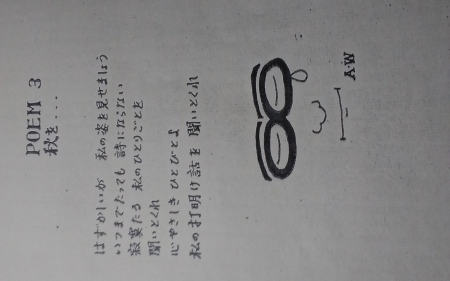 POEM 3
秋を...
はずかしいが 私の姿を見せましょう
いつまでたっても 詩にならない
寂寞たる 私のひとりごとを
聞いとくれ
心やさしき ひとびとよ
私の打明け話を 聞いとくれ
A・W